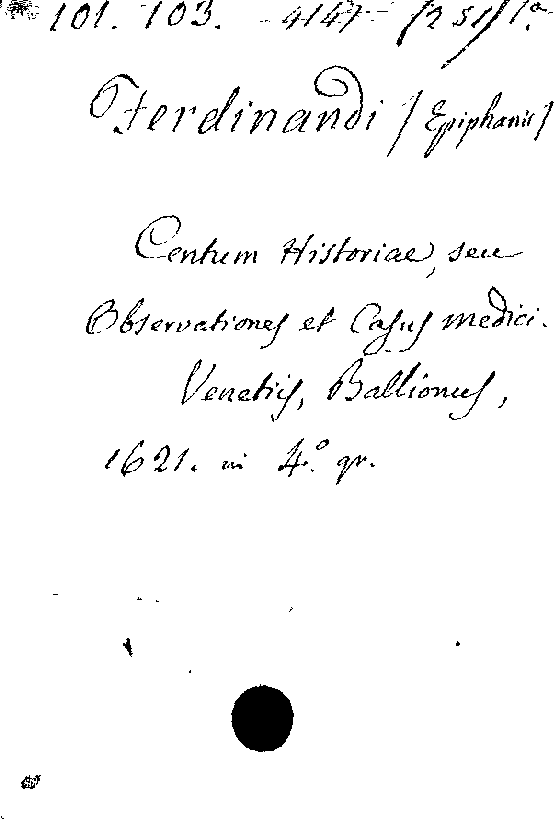 101. 103.
Ferdinandi / Epiphanii /
Centum Historiae, seu
Observationes et Casus medici.
Venetiis, Ballionus,
1621. in 4.° gr.